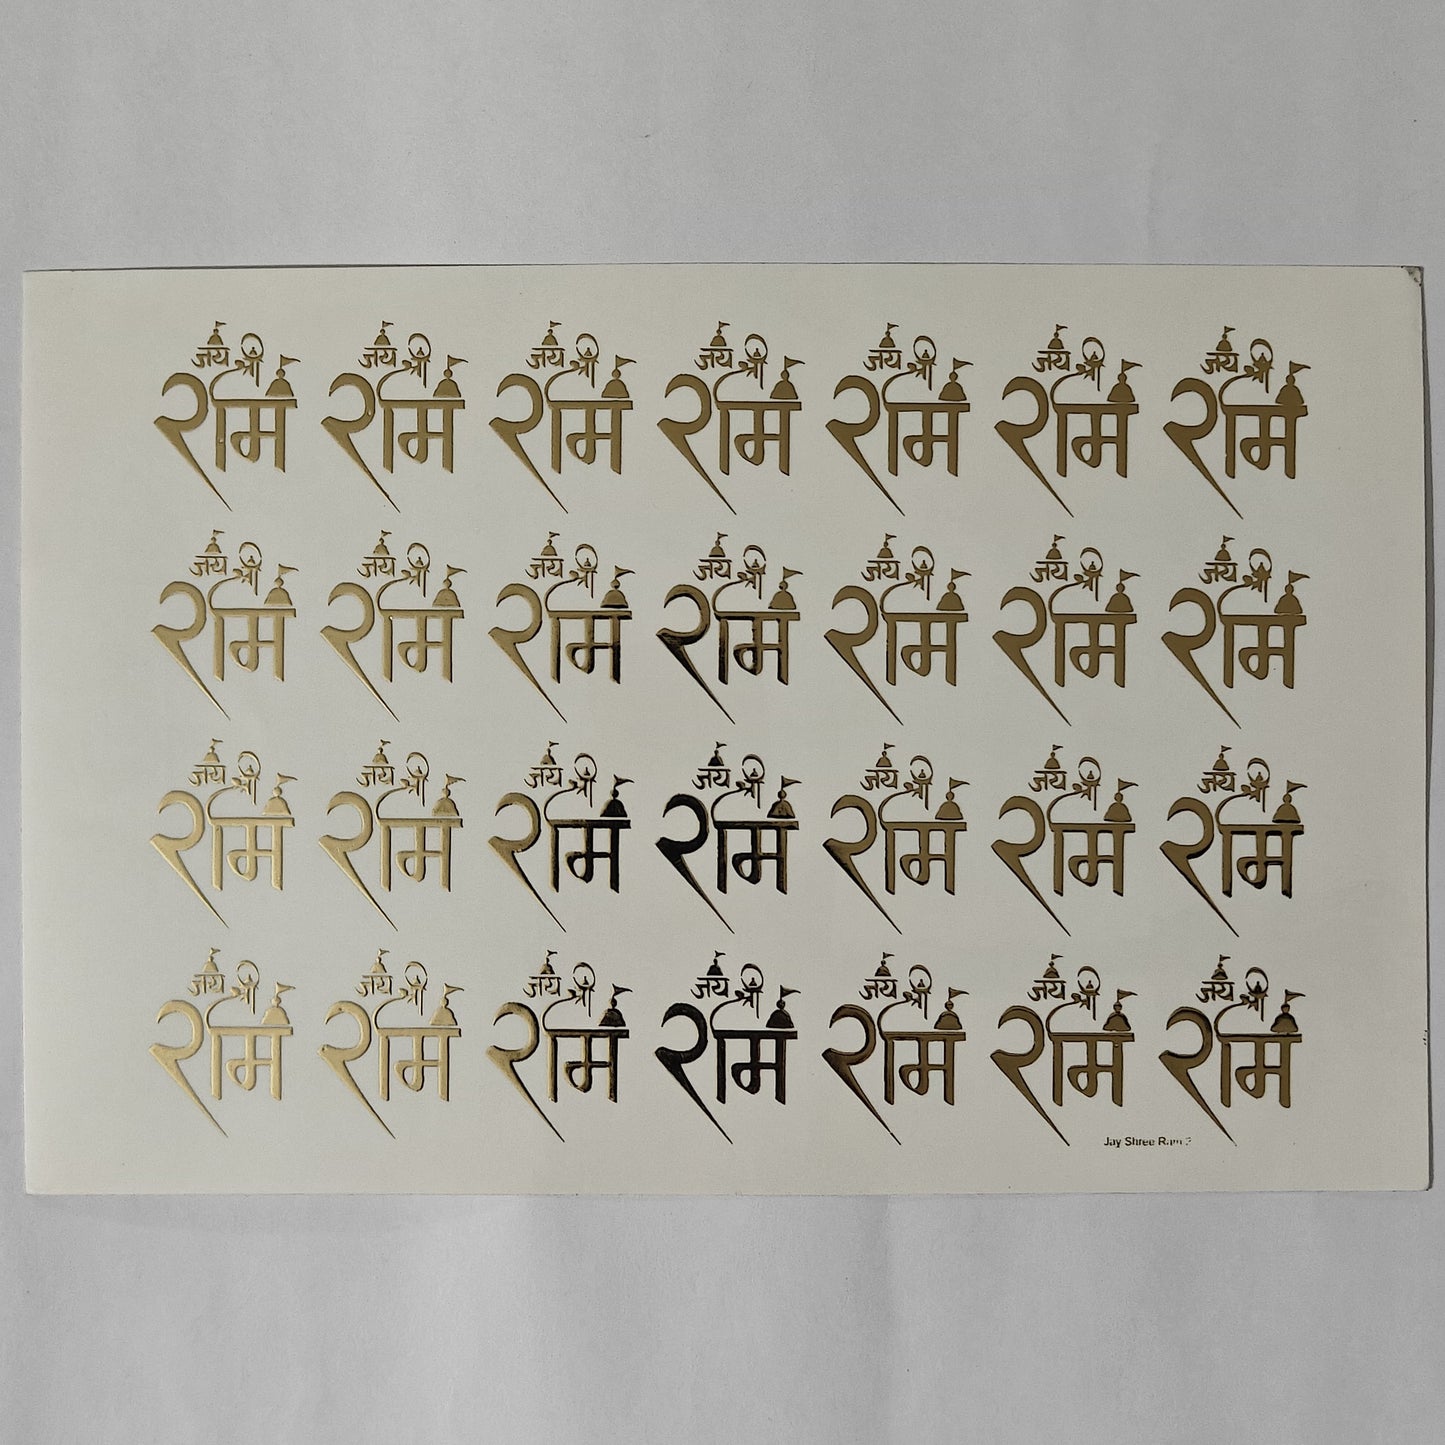 जय श्री जय श्री जय श्री जय श्री जय श्री जय श्री जय श्री
राम राम राम राम राम राम राम
जय श्री जय श्री जय श्री जय श्री जय श्री जय श्री जय श्री
राम राम राम राम राम राम राम
जय श्री जय श्री जय श्री जय श्री जय श्री जय श्री जय श्री
राम राम राम राम राम राम राम
जय श्री जय श्री जय श्री जय श्री जय श्री जय श्री जय श्री
राम राम राम राम राम राम राम
Jay Shree Ram